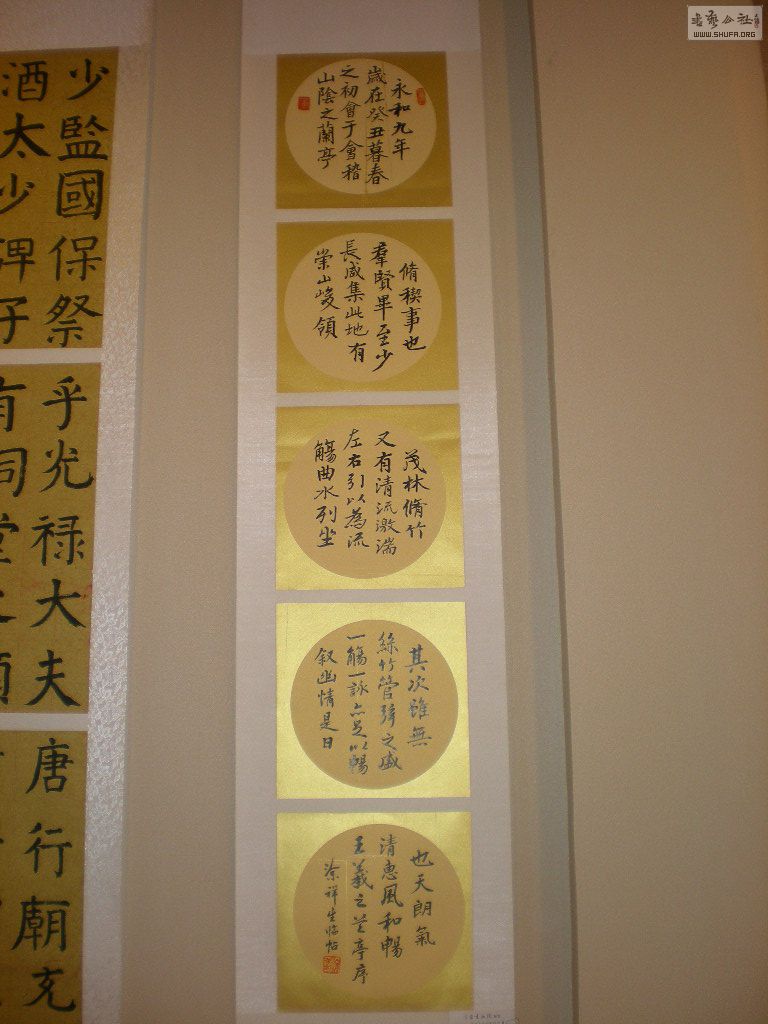 永和九年
歲在癸丑暮春
之初會于會稽
山陰之蘭亭
脩稧事也
羣賢畢至少
長咸集此地有
崇山峻領
茂林脩竹
又有清流激湍
左右引以為流
觴曲水列坐
其次雖無
絲竹管弦之盛
一觴一詠亦足以暢
叙幽情是日
也天朗氣
清惠風和暢
王羲之蘭亭序
祥生臨帖
少監國保祭
酒太少碑子
乎光禄大夫
有同堂
唐行廟充
书艺公社
WWW.SHUFA.ORG